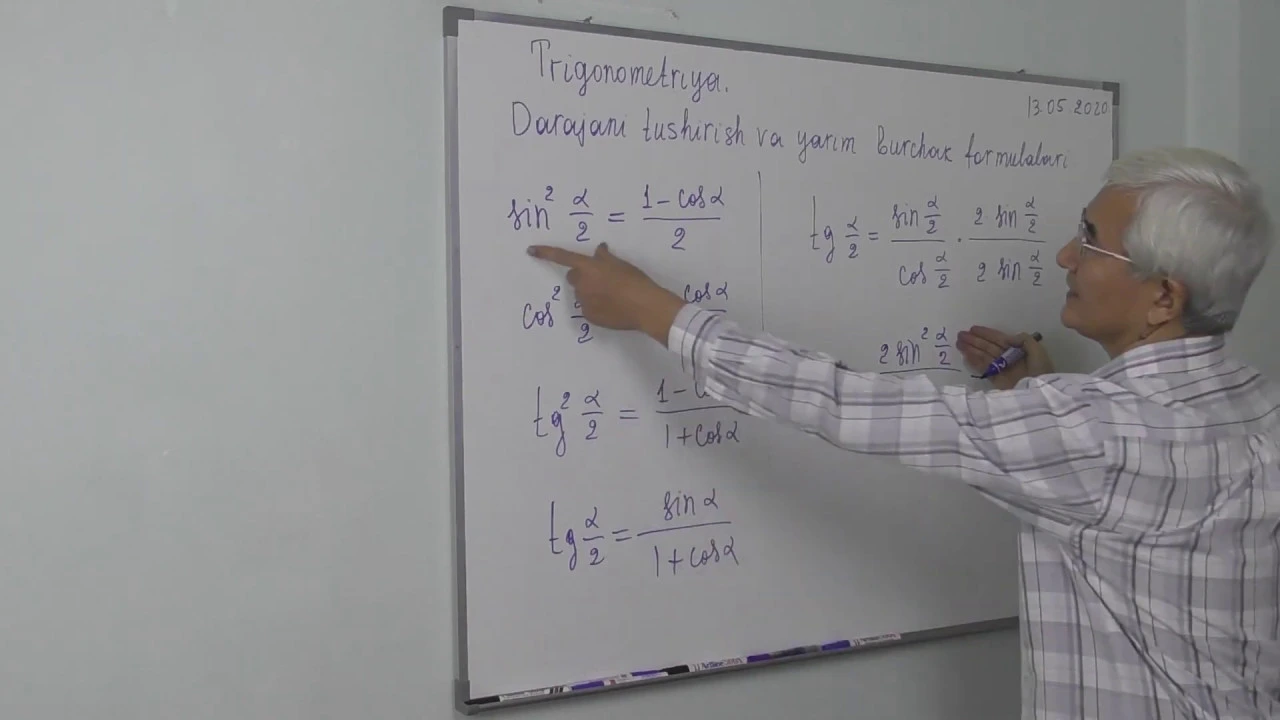 Trigonometriya.
13.05 2020
Darajani tushirish va yarim burchak formulalari
sin² α/2 = 1 - cosα / 2
cos² α/2 cosα
tg² α/2 = 1 - / 1 + cosα
tg α/2 = sin α / 1 + cosα
tg α/2 = sin α/2 / cos α/2 · 2 · sin α/2 / 2 sin α/2
2 sin² α/2